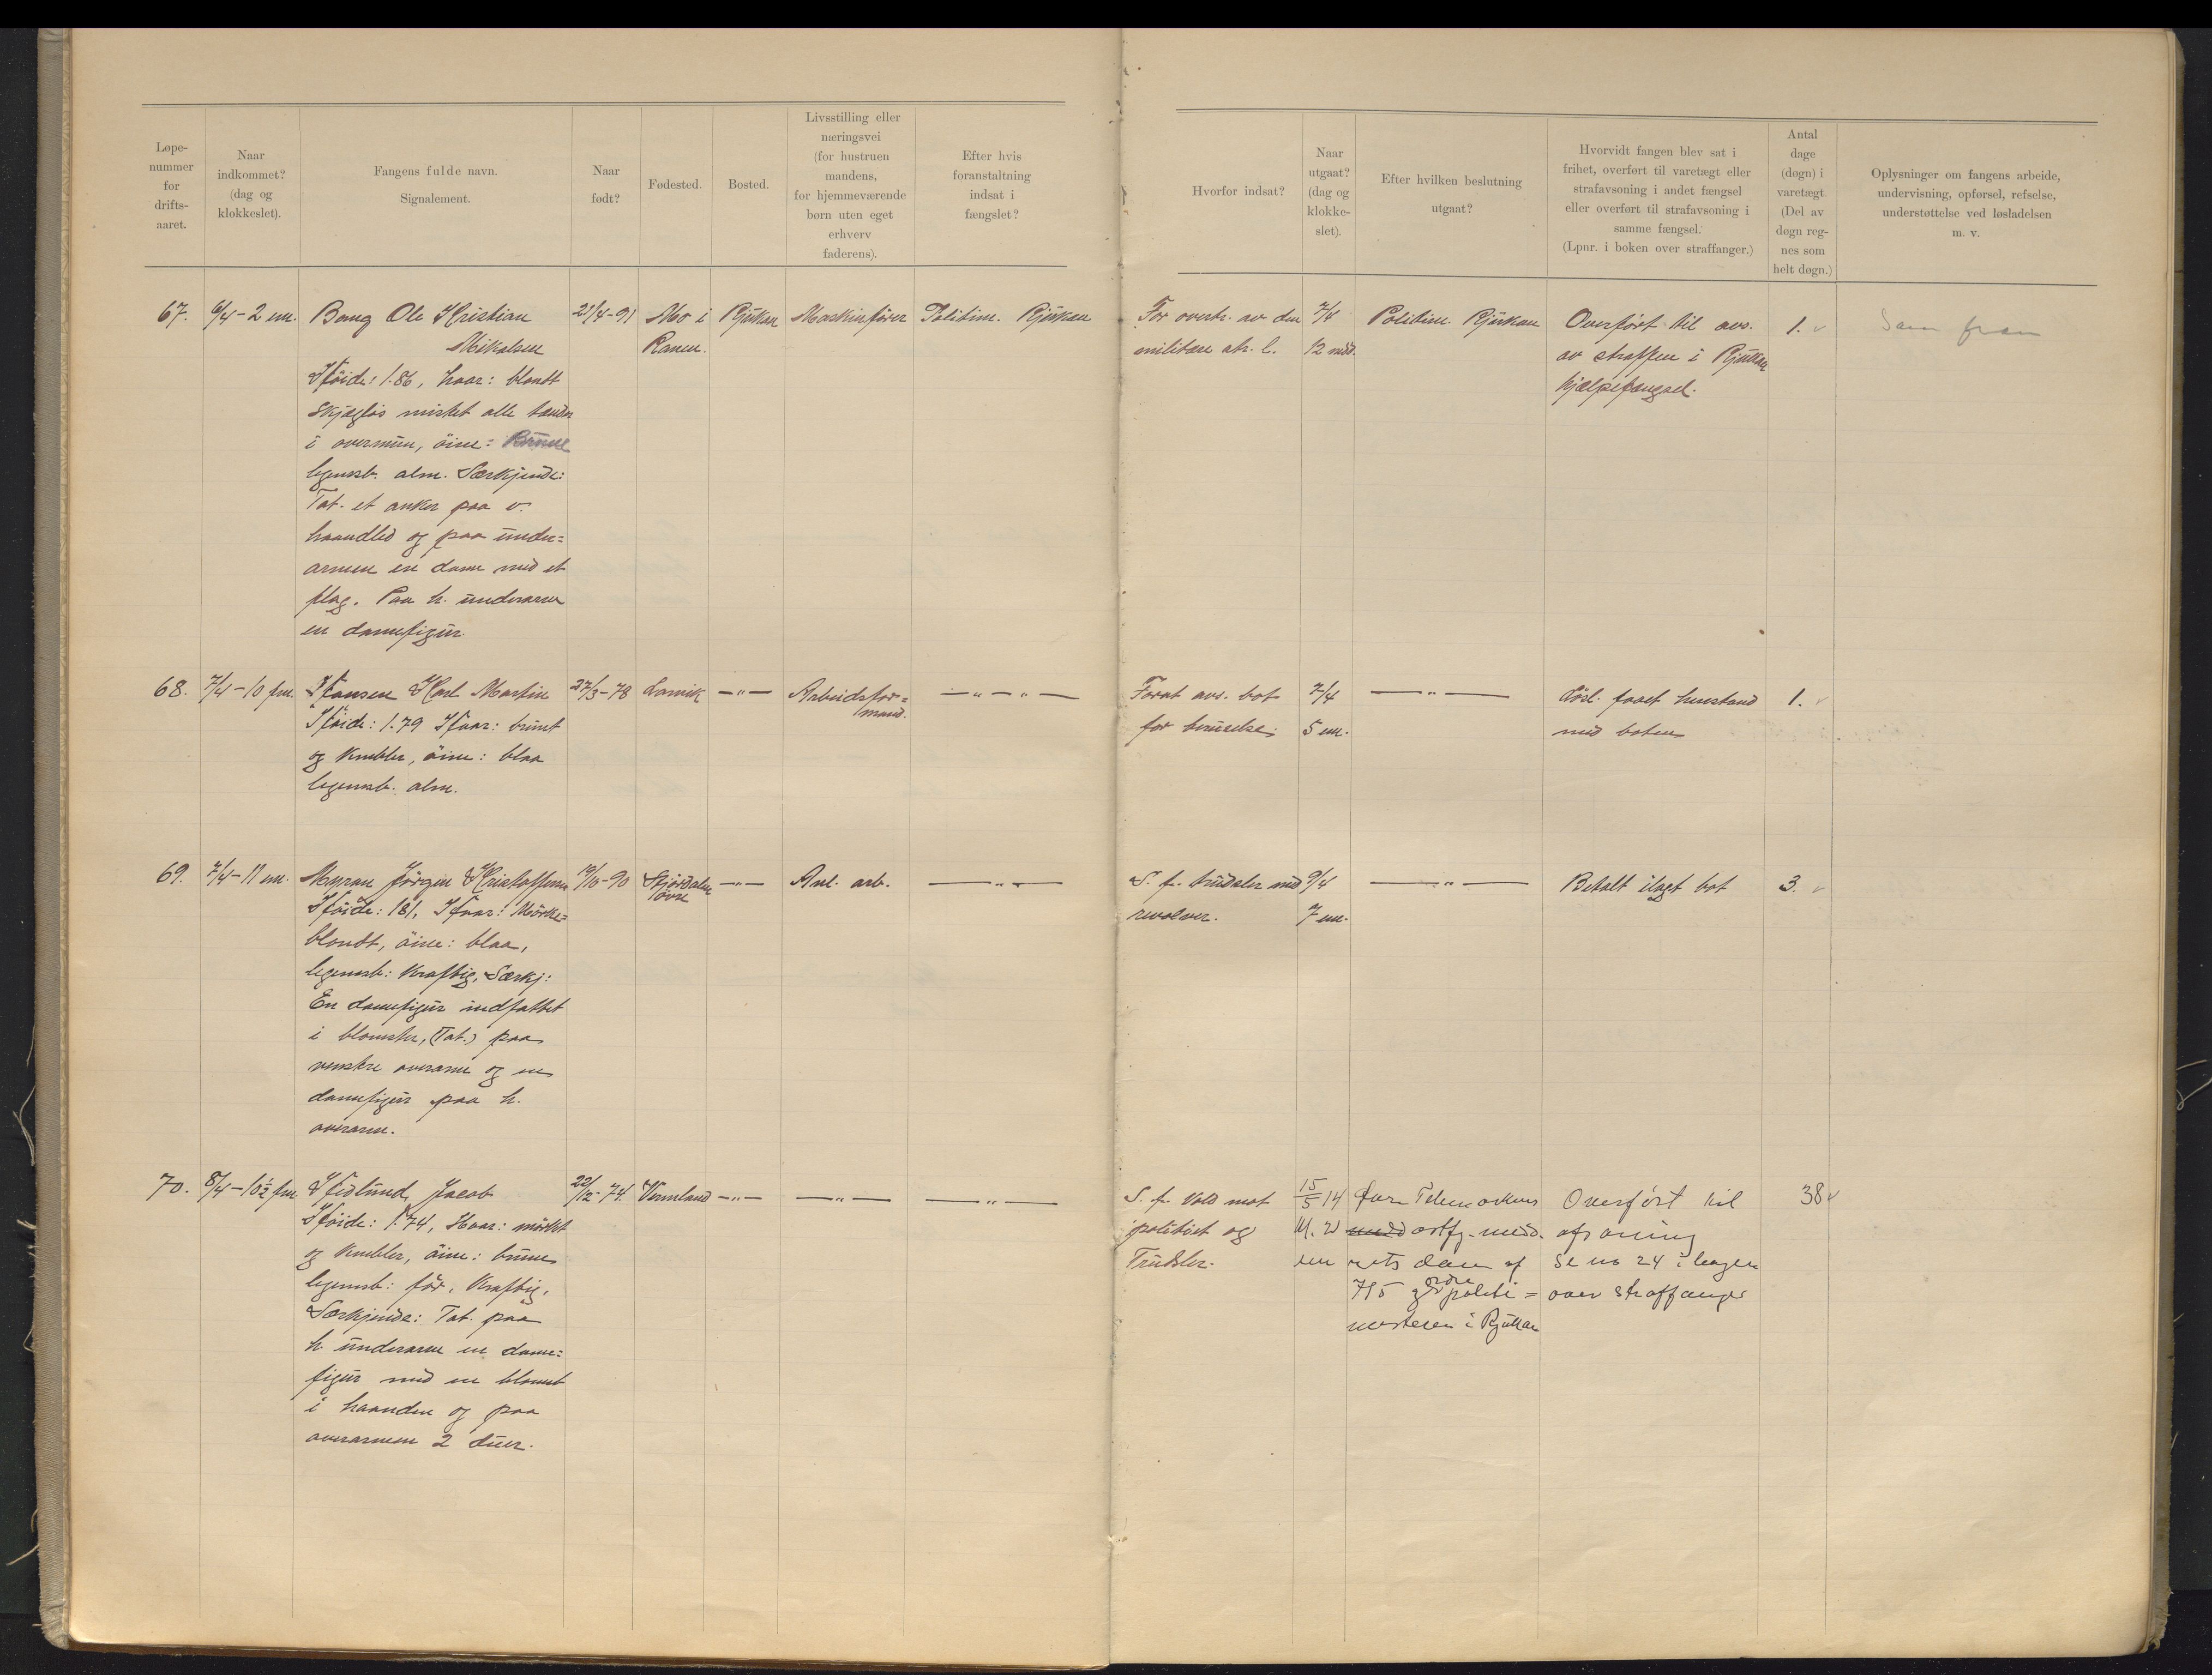 Løpe-
nummer
for
drifts-
aaret.
Naar
indkommet?
(dag og
klokkeslet).
Fangens fulde navn.
Signalement.
Naar
født?
Fødested.
Bosted.
Livsstilling eller
næringsvei
(for hustruen
mandens,
for hjemmeværende
børn uten eget
erhverv
faderens).
Efter hvis
foranstaltning
indsat i
fængslet?
Hvorfor indsat?
Naar
utgaat?
(dag og
klokke-
slet).
Efter hvilken beslutning
utgaat?
Hvorvidt fangen blev sat i
frihet, overført til varetægt eller
strafavsoning i andet fængsel
eller overført til strafavsoning i
samme fængsel.
(Lpnr. i boken over straffanger.)
Antal
dage
(døgn) i
varetægt.
(Del av
døgn reg-
nes som
helt døgn.)
Oplysninger om fangens arbeide,
undervisning, opførsel, refselse,
understøttelse ved løsladelsen
m. v.
67.
6/4 - 2 em.
Bang Ole Kristian
Mikalsen
Höide: 1.86, haar: blondt
skjæglös mistet alle tænder
i overmun, öine: Brune
legemsb. alm. Særkjende:
Tat. et anker paa v.
haandled og paa under=
armen en dame med et
flag. Paa h. underarm
en damefigur.
21/4-91
Mo i
Ranen.
Rjukan
Maskinfører
Politim. Rjukan
For overtr. av den
militære str. l.
7/4
12 mid.
Politim. Rjukan
Overfört til avs.
av straffen i Rjukan
hjælpefængsel.
1.
68.
7/4 - 10 fm.
Hansen Karl Martin
Höide: 1.79 Haar: brunt
og knebler, öine: blaa
legemsb. alm.
27/3-78
Larvik
— " —
Arbeidsfor=
mand.
— " — " —
Forat avs. bot
for beruselse.
7/4
5 em.
— " —
Lösl. faaet henstand
med boten
1.
69.
7/4 - 11 em.
Myran Jörgen Kristoffersen
Höide: 181, Haar: Mörke=
blondt, öine: blaa,
legemsb: Kraftig, Særkj:
En damefigur indfattet
i blomster, (Tat.) paa
venstre overarm og en
damefigur paa h.
overarm.
19/10-90
Stjördalen
övre
— " —
Anl. arb.
— " —
S. f. trudsler med
revolver.
9/4
7 em.
— " —
Betalt ilagt bot
3.
70.
8/4 - 10 1/2 fm.
Hedlund, Jacob
Höide: 1.74, Haar: mörkt
og knebler, öine: brune
legemsb: för, Kraftig,
Særkjende: Tat. paa
h. underarm en dame=
figur med en blomst
i haanden og paa
overarmen 2 duer.
22/12-74.
Vermland
— " —
— " —
— " —
S. f. Vold mot
politiet og
Trudsler.
15/5 14
Kl. 2
em
Telemarkens
østfj. med.
rets dom af
7/5 og ordre politi =
mesteren i Rjukan
Overfört til
afsoning
Se no 24 i bogen
over straffanger
38